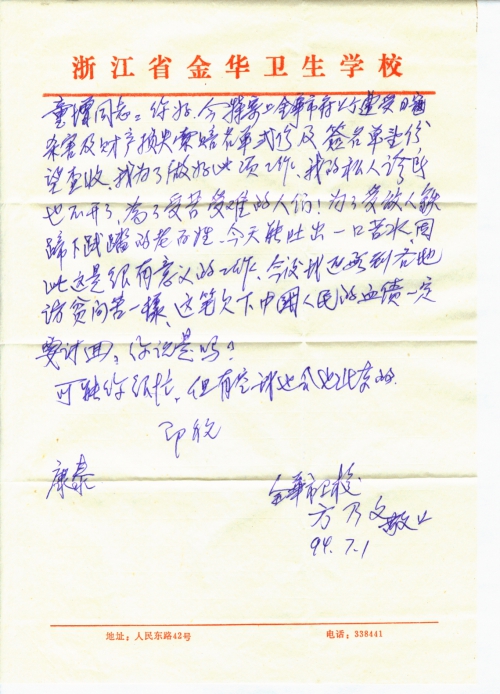 浙江省金华卫生学校
童增同志：你好，今特寄上金华市府以后遭受日寇
杀害及财产损失索赔名单或份及签名单壹份
望查收，我为了做好此项工作，我的私人诊所
也不开了，为了受苦受难的人们！为了受敌人铁
蹄下践踏的老百姓，今天能吐出一口苦水，因
此这是很有意义的工作，今后我还要到各地
访贫问苦一样，这笔欠下中国人民的血债一定
要讨回，你说是吗？
可能你很忙，但有空请
即祝
康泰
金华市卫校
方乃文敬上
94.7.1
地址：人民东路42号
电话：338441